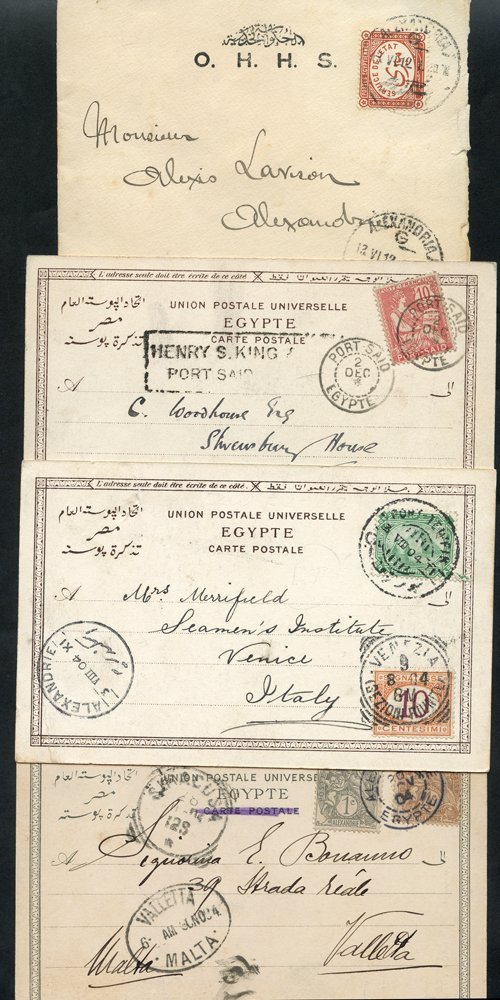 الحكومة المصرية
O. H. H. S.
SERVICE DE L'ETAT
VI 12
Monsieur
Alexis Lavison
Alexandria
ALEXANDRIA
G
13 VI 12
L'adresse seule doit être écrite de ce côté
اتحاد البوسته العام
مصر
تذكرة بوسته
UNION POSTALE UNIVERSELLE
EGYPTE
CARTE POSTALE
10
PORT SAID
DEC
HENRY S. KING
PORT SAID
PORT SAID
2
DEC
EGYPTE
A
الى
C. Woodhouse Esq
Shrewsbury House
L'adresse seule doit être écrite de ce côté.
اتحاد البوسته العام
مصر
تذكرة بوسته
UNION POSTALE UNIVERSELLE
EGYPTE
CARTE POSTALE
A
الى
Mrs Merrifield
Seamen's Institute
Venice
Italy
ALEXANDRIE
3 VIII 04 XI
VENEZIA
9
8 4
10
CENTESIMI
اتحاد البوسته العام
مصر
تذكرة بوسته
UNION POSTALE UNIVERSE
EGYPTE
CARTE POSTALE
SIRACUSA
1c
EGYPTE
A
الى
Signorina E. Bonanno
39 Strada Reale
VALLETTA
MALTA
Valletta
Malta